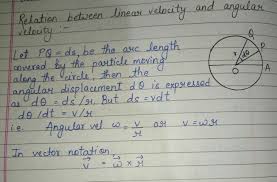 Relation between linear velocity and angular
velocity :-
Let PQ = ds, be the arc length
covered by the particle moving
along the circle, then the
angular displacement dθ is expressed
as dθ = ds/r. But ds = vdt
dθ/dt = v/r
i.e. Angular vel ω = v/r or v = ωr
In vector notation,
v⃗ = ω⃗ × r⃗
Q
P
r
dθ
O
A